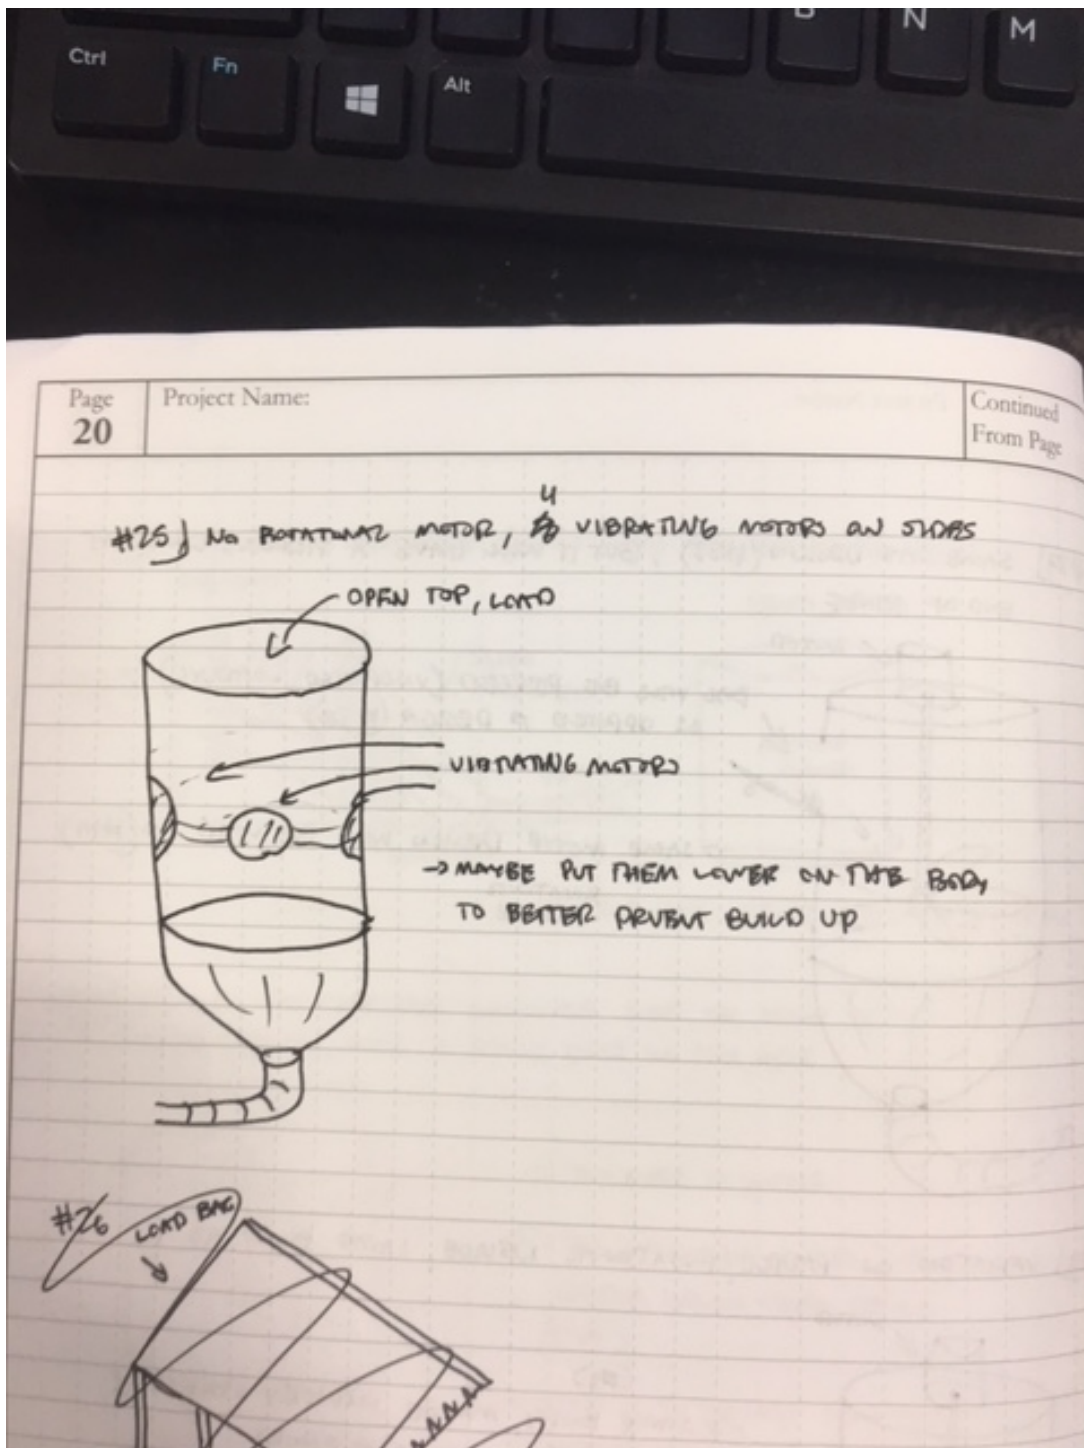 B N M
Ctrl Fn Alt
Page
20
Project Name:
Continued
From Page
4
#25) NO ROTATIONAL MOTOR, VIBRATING MOTORS ON SIDES
OPEN TOP, LOAD
VIBRATING MOTORS
→ MAYBE PUT THEM LOWER ON THE BODY
TO BETTER PREVENT BUILD UP
#26
LOAD BAG